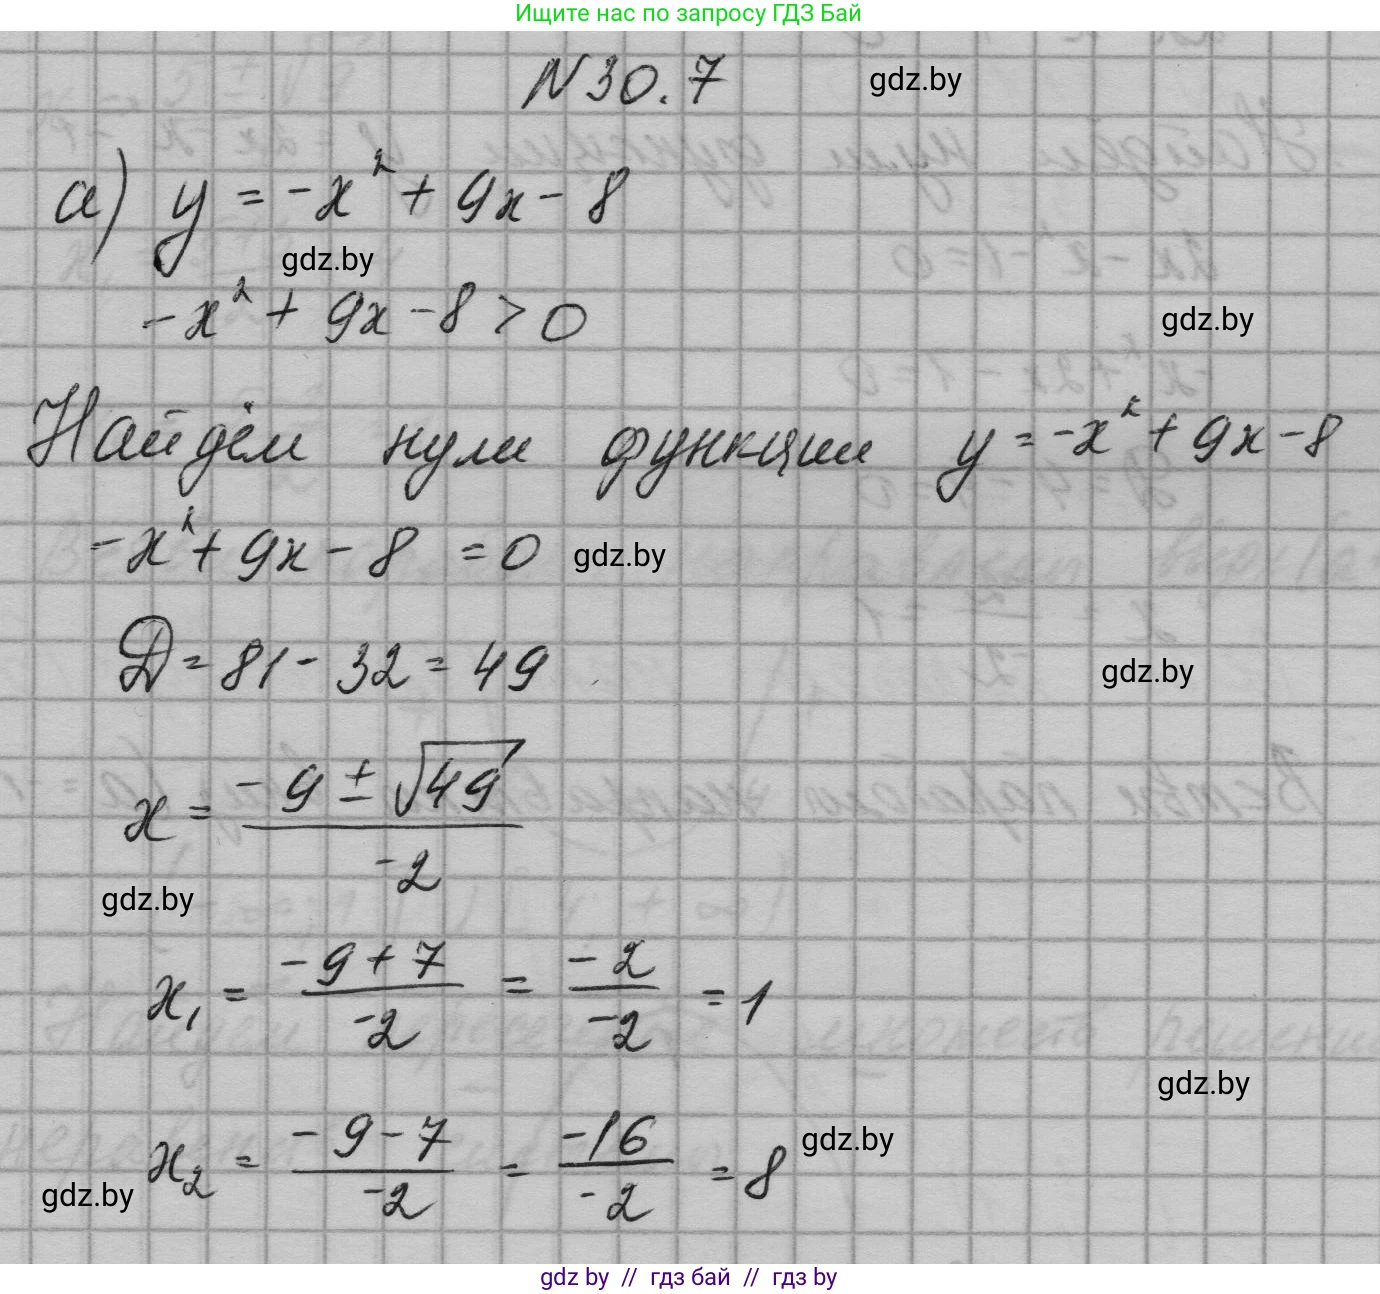 Ищите нас по запросу ГДЗ Бай
N 30.7
gdz.by
а) y = -x² + 9x - 8
gdz.by
-x² + 9x - 8 > 0
gdz.by
Найдём нули функции y = -x² + 9x - 8
-x² + 9x - 8 = 0
gdz.by
D = 81 - 32 = 49
gdz.by
x = (-9 ± √49) / -2
gdz.by
x₁ = (-9 + 7) / -2 = -2 / -2 = 1
gdz.by
x₂ = (-9 - 7) / -2 = -16 / -2 = 8
gdz.by
gdz.by
gdz by // гдз бай // гдз by